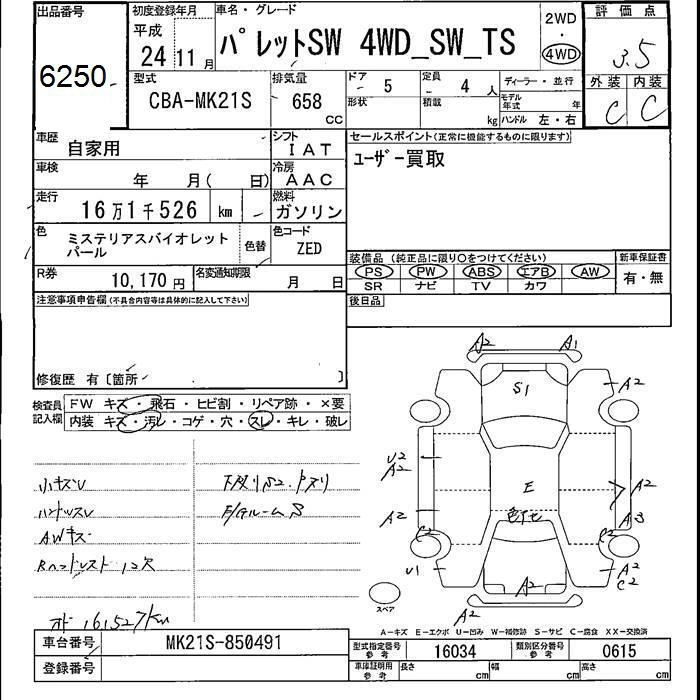 出品番号 初度登録年月 車名・グレード 2WD 評価点
6250 平成 24年 11月 パレットSW 4WD_SW_TS ・ 4WD 3.5
型式 CBA-MK21S 排気量 658 CC ドア 5 定員 4 人 ディーラー・並行 外装 内装
形状 積載 kg モデル年式 年 ハンドル 左・右 C C
車歴 自家用 シフト IAT セールスポイント(正常に機能するものに限ります)
車検 年 月( 日) 冷房 AAC ユーザー買取
走行 16万1千526 km 燃料 ガソリン
色 ミステリアスバイオレット 色替 色コード ZED
パール
装備品 (純正品に限り○をつけてください) 新車保証書
R券 10,170円 名変通知期限 月 日 PS PW ABS エアB AW 有・無
SR ナビ TV カワ
注意事項申告欄(不具合内容等は具体的に記入して下さい) 後日品
修復歴 有〔箇所 〕
検査員記入欄 FW キズ・飛石・ヒビ割・リペア跡・×要
内装 キズ・汚レ・コゲ・穴・スレ・キレ・破レ
小キズU
ハンドルスレ
AWキズ
Rヘッドレスト 1コ欠
オド 161527km
A2 A1
S1
A2
U2
A2
E
A2
A2
色あせ
A3
C2
U1
A2
C2
A2
A2
スペア
A-キズ E-エクボ U-凹み W-補修跡 S-サビ C-腐食 XX-交換済
車台番号 MK21S-850491 型式指定番号 参考 16034 類別区分番号 参考 0615
登録番号 車庫証明用 参考 長さ cm 幅 cm 高さ cm